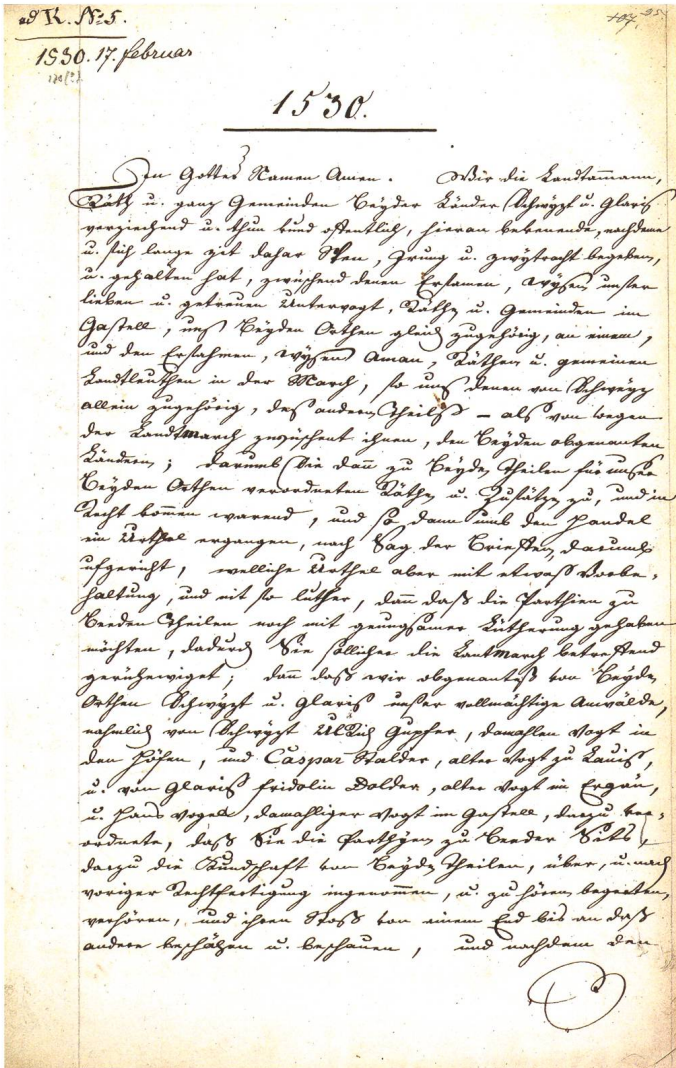 ad K. No 5.
1530. 17. februar
1530.
In Gottes Namen Amen. Wir die Landtammann,
Räth u. ganz Gemeinden Beyder Länder Schwytz u. Glaris
verziechend u. thun kund offentlich, hieran bekenende, nachdeme
u. sich lange zit dahar Spen, Irung u. zwytracht begeben,
u. gehalten hat, zwüschend denen Ersamen, wysen unser
lieben u. getreuen Untervogt, Räthe u. Gemeinden im
Gastell, uns Beyden Orthen gleich zugehörig, an einem,
und den Ersahmen, wysen Aman, Räthen u. gemeinen
Landtleuthen in der March, so uns denen von Schweytz
allein zugehörig, des andern Theils – als von wegen
der Landtmarch zwüschent ihnen, den Beyden obgenanten
Ländern; darumb Sie dann zu Beyden Theilen für unser
Beyden Orthen verordneten Räthe u. Zusätze zu, und in
Recht kommen warend, und so dann umb den Handel
ein Urthel ergangen, nach Sag der Brieffen, darumb
ufgericht, welliche Urthel aber mit etwas Vorbe-
haltung, und nit so luther, dann daß die Parthien zu
Beeden Theilen noch mit genugsamer Lütherung gehaben
möchten, dadurch Sie söllicher die Lantmarch betreffend
gerüchewiget; dann daß wir obgenantes von Beyden
Orthen Schwytz u. Glaris unser vollmächtige Anwälde,
nahmlich von Schwytz Ulrich Gupfer, damahlen Vogt in
den Höfen, und Caspar Stalder, alter Vogt zu Lauis,
u. von Glaris fridolin Dolder, alter Vogt im Ergäu,
u. Hans Vogel, damahliger Vogt im Gastell, darzu ver-
ordnete, daß Sie die Parthyen zu Beeder Sits
darzu die Kundschaft von Beyden Theilen, über, u. nach
voriger Rechtfertigung ingenommen, u. zu hören begerten,
verhören, und ihren Stoß von einem End bis an daß
andere beschähen u. beschauen, und nachdem den